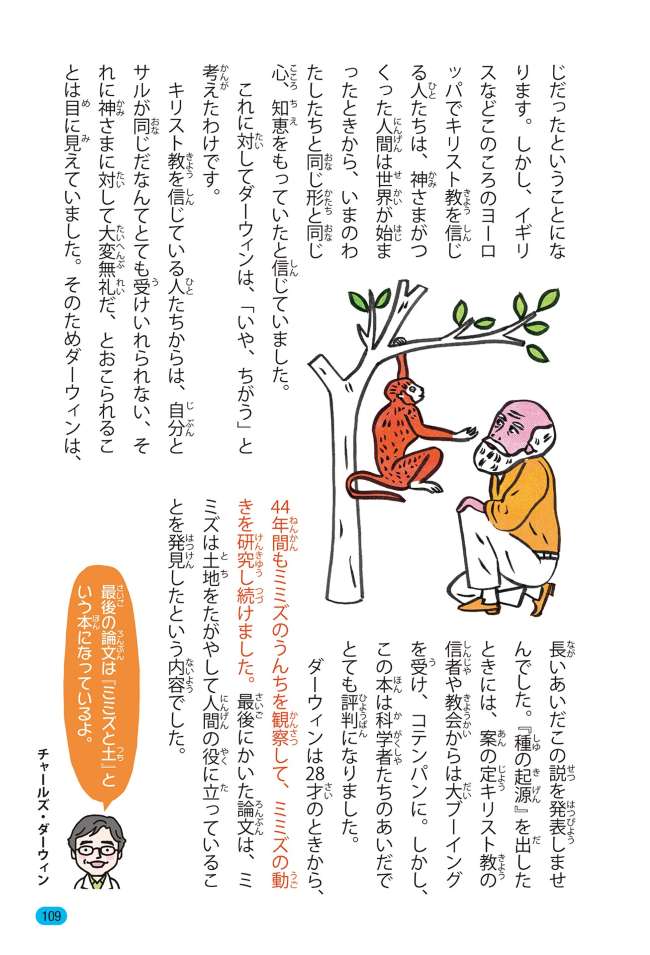 じだったということにな
ります。しかし、イギリ
スなどこのころのヨーロ
ッパでキリスト教を信じ
る人たちは、神さまがつ
くった人間は世界が始ま
ったときから、いまのわ
たしたちと同じ形と同じ
心、知恵をもっていたと信じていました。
これに対してダーウィンは、「いや、ちがう」と
考えたわけです。
キリスト教を信じている人たちからは、自分と
サルが同じだなんてとても受けいれられない、そ
れに神さまに対して大変無礼だ、とおこられるこ
とは目に見えていました。そのためダーウィンは、
長いあいだこの説を発表しませ
んでした。『種の起源』を出した
ときには、案の定キリスト教の
信者や教会からは大ブーイング
を受け、コテンパンに。しかし、
この本は科学者たちのあいだで
とても評判になりました。
ダーウィンは28才のときから、
44年間もミミズのうんちを観察して、ミミズの動
きを研究し続けました。最後にかいた論文は、ミ
ミズは土地をたがやして人間の役に立っているこ
とを発見したという内容でした。
最後の論文は『ミミズと土』と
いう本になっているよ。
チャールズ・ダーウィン
109